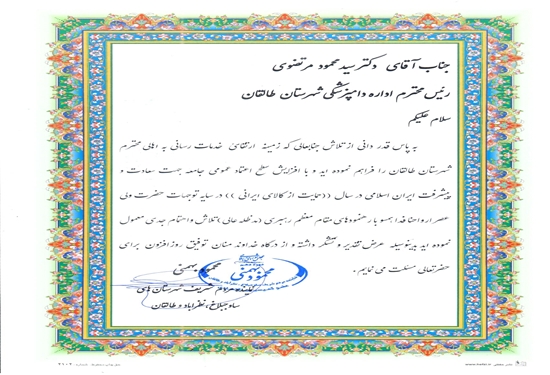 جناب آقای دکتر سید محمود مرتضوی
رئیس محترم اداره دامپزشکی شهرستان طالقان
سلام علیکم
به پاس قدر دانی از تلاش جنابعالی که زمینه ارتقای خدمات رسانی به اهالی محترم
شهرستان طالقان را فراهم نموده اید و با افزایش سطح اعتماد عمومی جامعه جهت سعادت و
پیشرفت ایران اسلامی در سال (( حمایت از کالای ایرانی )) در سایه توجهات حضرت ولی
عصر ارواحنا فدا همسو با رهنمودهای مقام معظم رهبری (مدظله عالی) تلاش و اهتمام جدی معمول
نموده اید بدینوسیله عرض تقدیر و تشکر داشته و از درگاه خداوند منان توفیق روزافزون برای
حضرتعالی مسئلت می نمایم .
محمود بهمنی
نماینده مردم شریف شهرستان های
ساوجبلاغ، نظرآباد و طالقان